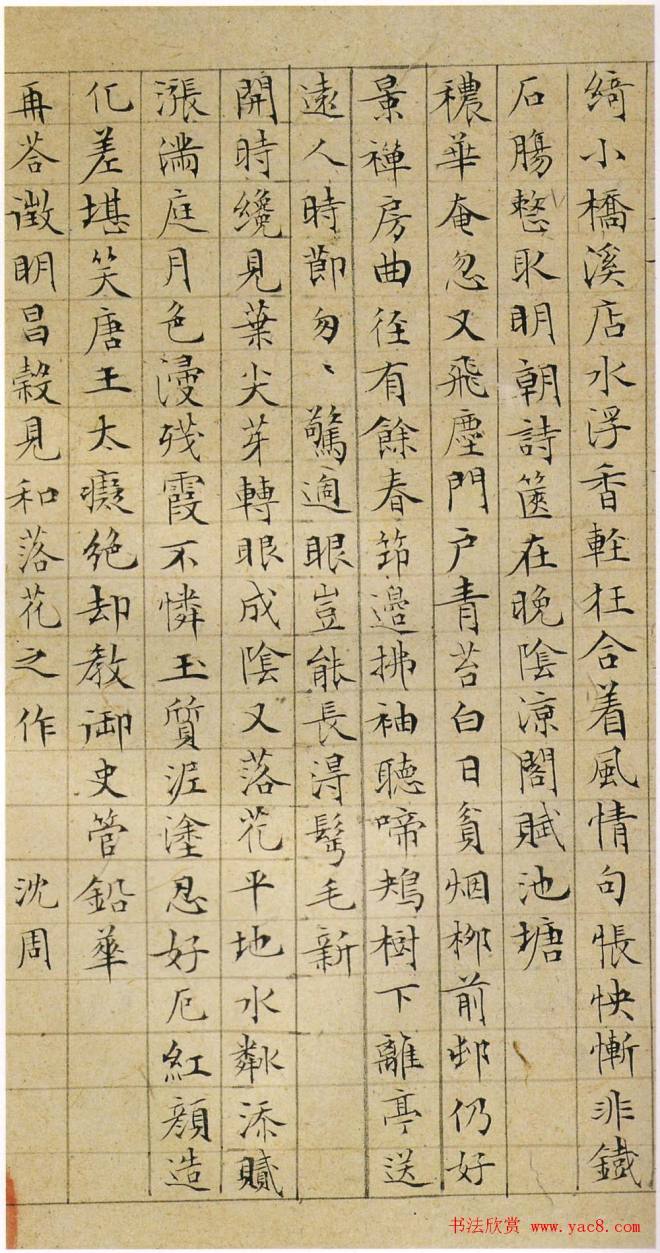 綺小橋溪店水浮香輕狂合着風情句悵怏慚非鐵
石腸整取明朝詩篋在晚陰涼閣賦池塘
穠華奄忽又飛塵門戶青苔白日貧烟柳前邨仍好
景禪房曲徑有餘春笻邊拂袖聽啼鴂樹下離亭送
遠人時節匆〻驚過眼豈能長得鬢毛新
開時纔見葉尖芽轉眼成陰又落花平地水粼添膩
漲滿庭月色浸殘霞不憐玉質泥塗忍好厄紅顏造
化差堪笑唐王太癡絕却教御史管鉛華
再荅徵明昌穀見和落花之作 沈周
书法欣赏 www.yac8.com